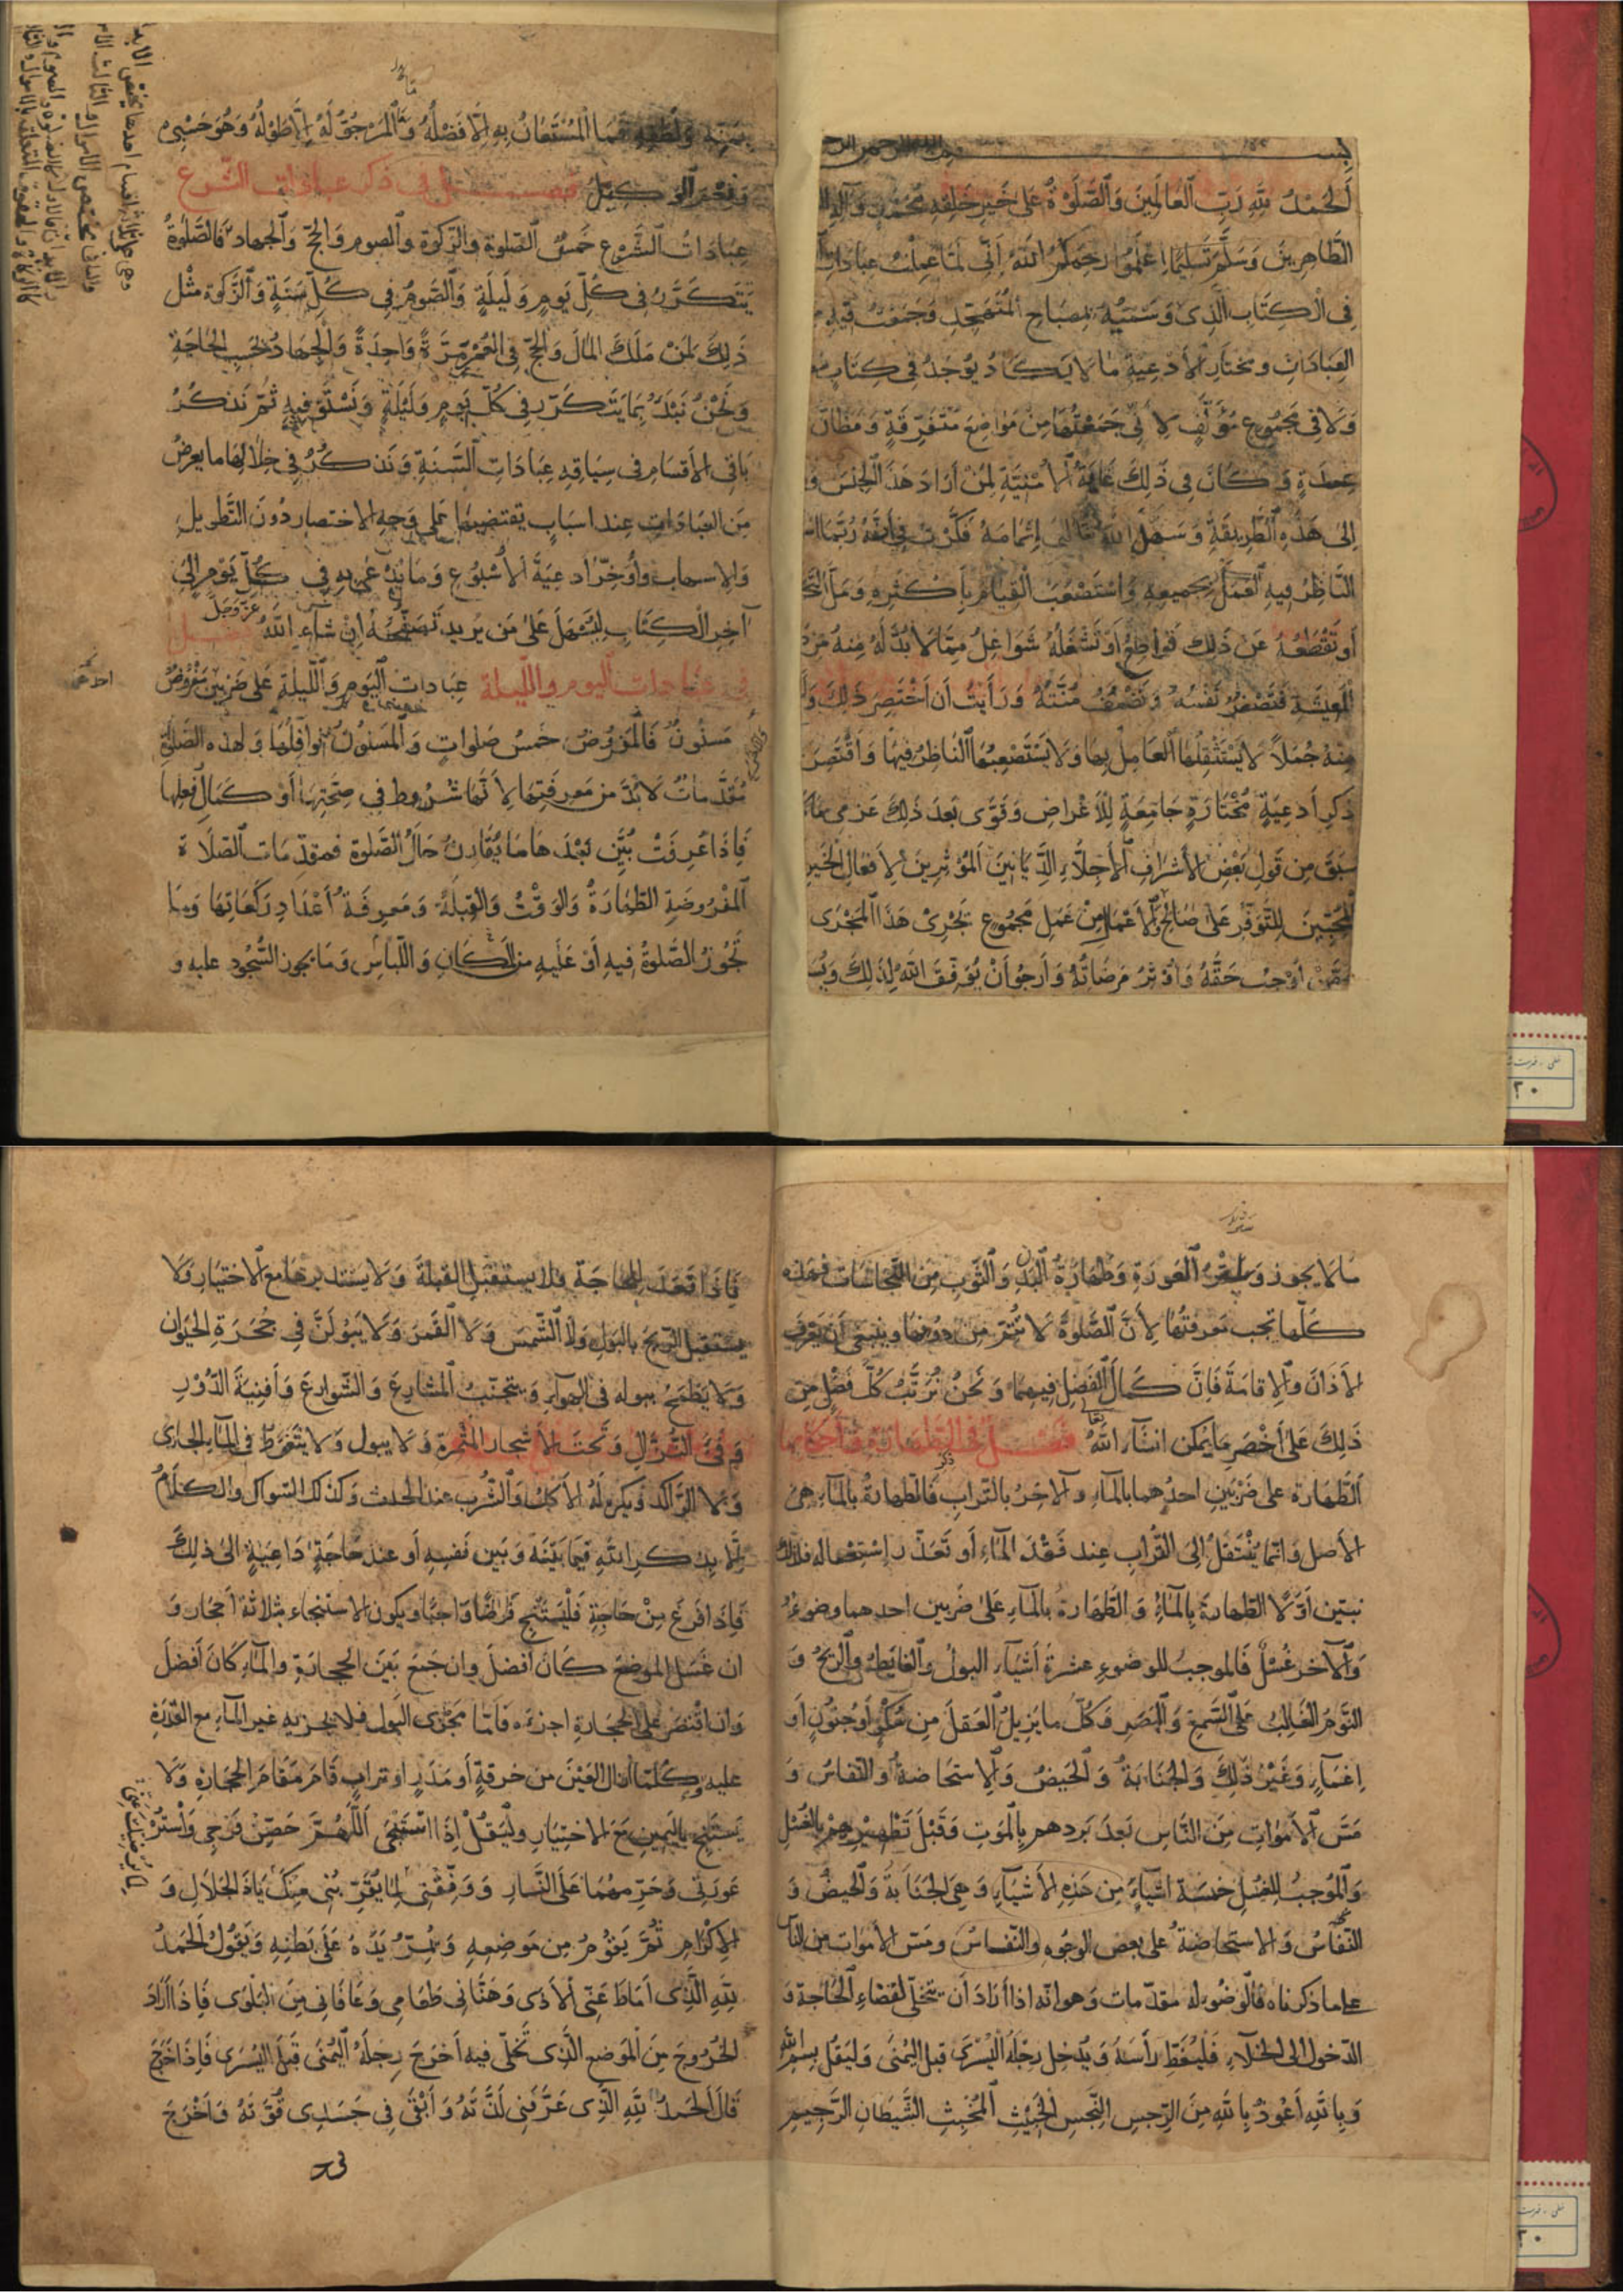 بسم الله الرحمن الرحيم
اَلْحَمْدُ لِلّٰهِ رَبِّ الْعَالَمِينَ وَالصَّلَوٰةُ عَلَىٰ خَيْرِ خَلْقِهِ مُحَمَّدٍ وَآلِهِ
الطَّاهِرِينَ وَسَلَّمَ تَسْلِيمًا اعْلَمُوا رَحِمَكُمُ اللّٰهُ اَنِّى لَمَّا عَمِلْتُ عِبَادَاتِ
فِى الْكِتَابِ الَّذِى وَسَمْتُهُ بِمِصْبَاحِ الْمُتَهَجِّدِ وَجَمَعْتُ فِيهِ
العِبَادَاتِ وَمُخْتَارِ الْأَدْعِيَةِ مَا لَا يَكَادُ يُوجَدُ فِى كِتَابٍ
وَلَا فِى مَجْمُوعٍ مُؤَلَّفٍ لِأَنِّى جَمَعْتُهَا مِنْ مَوَاضِعَ مُتَفَرِّقَةٍ وَمَظَانَّ
وَكَانَ فِى ذَلِكَ غَايَةُ الْأُمْنِيَّةِ لِمَنْ أَرَادَ هَذَا الْجِنْسَ
اِلَى هَذِهِ الطَّرِيقَةِ وَسَهَّلَ اللّٰهُ تعالى اِتْمَامَهُ فَكَّرْتُ فِى أَنَّهُ رُبَّمَا
النَّاظِرُ فِيهِ الْعَمَلَ بِجَمِيعِهِ وَاسْتَصْعَبَ الْقِيَامَ بِأَكْثَرِهِ وَمَلَّ
أَوْ تَقْطَعُهُ عَنْ ذَلِكَ قَوَاطِعُ أَوْ تَشْغَلُهُ شَوَاغِلُ مِمَّا لَا بُدَّ لَهُ مِنْهُ مِنْ
الْمَعِيشَةِ فَتَصْغُرُ نَفْسُهُ وَتَضْعُفُ مُنَّتُهُ وَرَأَيْتُ أَنْ أَخْتَصِرَ ذَلِكَ
مِنْهُ جُمَلًا لَا يَسْتَثْقِلُهَا الْعَامِلُ بِهَا وَلَا يَسْتَصْعِبُهَا النَّاظِرُ فِيهَا وَأَقْتَصِرَ
ذِكْرِ أَدْعِيَةٍ مُخْتَارَةٍ جَامِعَةٍ لِلْأَغْرَاضِ وَقَوَّى بَعْدَ ذَلِكَ عَزْمِى مَا
سَبَقَ مِنْ قَوْلِ بَعْضِ الأَشْرَافِ الأَجِلَّاءِ الدَّيَّانِينَ الْمُؤْثِرِينَ لِأَفْعَالِ الْخَيْرِ
الْمُحِبِّينَ لِلتَّوَفُّرِ عَلَى صَالِحِ الأَعْمَالِ مِنْ عَمَلِ مَجْمُوعٍ تَجْرِى هَذَا الْمَجْرَى
مِمَّنْ أُوجِبُ حَقَّهُ وَأُوثِرُ مَرْضَاتَهُ وَأَرْجُو أَنْ يُوَفِّقَ اللّٰهُ لِذَلِكَ
بِمَنِّهِ وَلُطْفِهِ فَمَا الْمُسْتَعَانُ بِهِ اِلَّا فَضْلُهُ وَلَا الْمَرْجُوُّ لَهُ اِلَّا طَوْلُهُ وَهُوَ حَسْبِى
وَنِعْمَ الْوَكِيلُ فصل فى ذكر عبادات الشرع
عِبَادَاتُ الشَّرْعِ خَمْسٌ الصَّلوة وَالزَّكوة وَالصوم وَالحَجّ وَالْجِهَاد فَالصَّلَوةُ
يَتَكَرَّرُ فِى كُلِّ يَومٍ وَلَيلَةٍ وَالصَّوْمُ فِى كُلِّ سَنَةٍ وَالزَّكوة مِثْلُ
ذَلِكَ لِمَنْ مَلَكَ الْمَالَ وَالحَجّ فِى الْعُمْرِ مَرَّةً وَاحِدَةً وَالْجِهَادُ بِحَسَبِ الْحَاجَةِ
وَنَحْنُ نَبْدَءُ بِمَا يَتَكَرَّرُ فِى كُلِّ يَومٍ وَلَيْلَةٍ وَنَسْتَوْفِيهِ ثُمَّ نَذْكُرُ
بَاقِى الْأَقْسَامِ فِى سِيَاقِهِ عِبَادَاتِ السَّنَةِ وَنَذْكُرُ فِى خِلَالِهَا مَا يَعْرِضُ
مِنَ الْعِبَادَاتِ عِندَ اَسْبَابٍ تَقْتَضِيهَا عَلَى وَجْهِ الاختصار دُونَ التَّطْوِيلِ
وَالاسهاب وَأُؤَخِّرُ أَدْعِيَةَ الْأُسْبُوعِ وَمَا يُدْعَى بِهِ فِى كُلِّ يَوْمٍ اِلَى
آخِرِ الْكِتَابِ لِيَسْهُلَ عَلَى مَنْ يُرِيدُ تَصَفُّحَهُ اِنْ شَاءَ اللّٰهُ عَزَّ وَجَلَّ فصل
فى عبادات اليوم والليلة عِبَادَات الْيَوْمِ وَاللَّيلَةِ عَلَى ضَرْبَيْنِ مَفْرُوضٌ
مَسْنُونٌ فَالْمَفْرُوضُ خَمْسُ صَلَوَاتٍ وَالْمَسْنُونُ نَوَافِلُهَا وَلِهَذِهِ الصَّلَاةِ
مُقَدَّمَاتٌ لَابُدَّ مِنْ مَعْرِفَتِهَا لِأَنَّهَا شُرُوط فِى صِحَّتِهَا أَوْ كَمَالِ فِعْلِهَا
فَاِذَا عُرِفَتْ بُيِّنَ بَعْدَهَا مَا يُقَارِنُ حَالَ الصَّلوة فمقدمات الصلاة
الْمَفْرُوضَةِ الطَّهَارَةُ وَالْوَقْتُ وَالْقِبْلَةُ وَمَعْرِفَةُ أَعْدَادِ رَكَعَاتِهَا وَمَا
تَجُوزُ الصَّلوةُ فِيهِ أَوْ عَلَيهِ مِنَ الْمَكَانِ وَاللِّبَاسِ وَمَا يجوز السُّجُود عليه و
مَا لَا يَجُوزُ وَسَتْرُ الْعَوْرَةِ وَطَهَارَةُ الْبَدَنِ وَالثَّوبِ مِنَ النَّجَاسَاتِ فَهَذِهِ
كُلُّهَا تجب مَعْرِفَتُهَا لِأَنَّ الصَّلَوةَ لَا تَتِمُّ مِنْ دُونِهَا وينبغى أَنْ يَعْرِفَ
الأَذَانَ وَالْاِقَامَةَ فَاِنَّ كَمَالَ الْفَضْلِ فِيهِمَا وَنَحْنُ نُرَتِّبُ كُلَّ فَصْلٍ مِنْ
ذَلِكَ عَلَى أَخْصَرِ مَا يُمْكِنُ انشآء اللّٰهُ تعالى فصل فى ذكر الطهارة وأحكامها
اَلطَّهَارَة عَلَى ضَرْبَيْنِ احدهما بالمآءِ والآخِرُ بِالتُّرَابِ فَالطَّهَارَةُ بِالمآءِ هِىَ
الأصل وَانَّمَا يُنْتَقَلُ اِلَى التُّرَابِ عِنْدَ فَقْدِ الْمَاءِ أَو تَعَذُّرِ اسْتِعْمَالِهِ فَلِذَلِكَ
نبتين أَوَّلًا الطَّهَارَةَ بِالْمَاءِ وَالطَّهَارَةُ بِالْمَآءِ عَلَى ضَرْبَيْنِ احدهما وضوءٌ
وَالْآخَرُ غُسْلٌ فَالْمُوجِبُ لِلْوُضُوءِ عَشَرَةُ أَشْيَآءَ الْبَوْلُ وَالْغَايِطُ وَالرِّيحُ وَ
النَّوْمُ الْغَالِبُ عَلَى السَّمْعِ وَالْبَصَرِ وَكُلُّ مَا يُزِيلُ الْعَقْلَ مِنْ سُكْرٍ أَوْ جُنُونٍ أَوْ
اِغْمَآءٍ وَغَيْرُ ذَلِكَ وَالْجَنَابَةُ وَالْحَيْضُ وَالْاِسْتِحَاضَةُ وَالنِّفَاسُ وَ
مَسُّ الْأَمْوَاتِ مِنَ النَّاسِ بَعْدَ بَرْدِهِمْ بِالْمَوْتِ وَقَبْلَ تَطْهِيرِهِمْ بِالْغُسْلِ
وَالْمُوجِبُ لِلْغُسْلِ خَمْسَة اَشْيَآءَ مِنْ هَذِهِ الْأَشْيَآءِ وَهِىَ الْجَنَابَةُ وَالْحَيضُ وَ
النِّفَاسُ وَالْاسْتِحَاضَةُ عَلَى بَعْضِ الْوُجُوهِ وَالنِّفَاسُ وَمَسُّ الْأَمْوَاتِ مِنَ النَّاسِ
على ما ذكرناه فَالْوُضُوءُ لَهُ مُقَدّمَات وَهُوَ اَنَّه اذا أَرَادَ أَن يَتَخَلَّى لِقَضَاءِ الْحَاجَة وَ
الدّخول الى الخلآء فَلْيُغَطِّ رَأْسَهُ وَيُدْخِل رِجْلَهُ الْيُسْرَى قَبلَ الْيُمْنَى وَلْيَقُلْ بِسْمِ اللّٰهِ
وَبِاللّٰهِ أَعُوذُ بِاللّٰهِ مِنَ الرِّجسِ النَّجِسِ الْخَبِيثِ الْمُخْبِثِ الشَّيْطَانِ الرَّجِيمِ
فَاِذَا قَعَدَ لِلْحَاجَةِ فلا يستقبل القبلة وَلَا يَسْتَدْبِرْهَا مَعَ الاختيار وَلَا
يستقبل الرِّيحَ بِالْبَوْلِ وَلَا الشَّمْسَ وَلَا الْقَمَرَ وَلَا يَبُولَنَّ فِى جُحرَةِ الْحَيَوَانِ
وَلَا يُطَمِّحُ ببوله فى الهوآء وَيتجنّبُ الْمَشَارِعَ وَالشَّوَارِعَ وَأَفْنِيَةَ الدُّورِ
وَفَىَّ النُّزَّالِ وَتَحْتَ الأشجار المثمرة وَلَا يَبُول وَلَا يَتَغَوَّط فِى الْمَآءِ الجارى
وَلَا الرَّاكِد وَيُكْرَه لَهُ الْأَكْلُ وَالشُّرْب عند الحدث وَكذلك السّواك والكلامُ
اِلَّا بِذِكْرِ اللّٰهِ فِيمَا بَيْنَهُ وَبَيْنَ نَفْسِهِ أَو عِنْدَ حَاجَةٍ دَاعِيَةٍ اِلَى ذَلِكَ
فَاِذَا فَرَغَ مِنْ حَاجَتِهِ فَلْيَسْتَنْجِ فَرْضًا وَاجبًا ويكون الاستنجاء بثلاثة احجار وَ
ان غَسَلَ الموضعَ كَانَ أفضلَ وان جَمَعَ بَيْنَ الحجارة والمآءِ كَانَ أَفْضَلَ
وَان اقْتَصَرَ عَلَى الْحِجَارَةِ اجزءه فَاَمَّا مَجْرَى الْبَولِ فلا يجزيه غير المآءِ مع القدرة
عليه وَكُلَّمَا أزال العَيْنَ مِن خرقةٍ أَو مَدَرٍ او ترابٍ قَامَ مَقَامَ الْحِجَارَةِ وَلَا
يَسْتَنْجِ بِالْيَمِينِ مَعَ الاختيار وَلْيَقُلْ اِذَا اسْتَنْجَى اَللّٰهُمَّ حَصِّنْ فَرْجِى وَاسْتُرْ
عَوْرَتِى وَحَرِّمْهُمَا عَلَى النَّارِ وَوَفِّقْنِى لِمَا يُقَرِّبُنِى مِنْكَ يَاذَا الْجَلَالِ وَ
الْاِكْرَامِ ثُمَّ يَقُومُ مِنْ مَوْضِعِهِ وَيُمِرُّ يَدَهُ عَلَى بَطْنِهِ وَيَقُولُ الْحَمْدُ
لِلّٰهِ الَّذِى اَمَاطَ عَنِّى الْأَذَى وَهَنَّأَنِى طَعَامِى وَعَافَانِى مِنَ الْبَلْوَى فَاِذَا أَرَادَ
الْخُرُوجَ مِنَ الْمَوْضِعِ الَّذِى تَخَلَّى فِيهِ أَخْرَجَ رِجلَهُ الْيُمْنَى قَبْلَ الْيُسْرَى فَاِذَا خَرَجَ
قَالَ اَلْحَمْدُ لِلّٰهِ الَّذِى عَرَّفَنِى لَذَّتَهُ وَأَبْقَى فِى جَسَدِى قُوَّتَهُ وَأَخْرَجَ